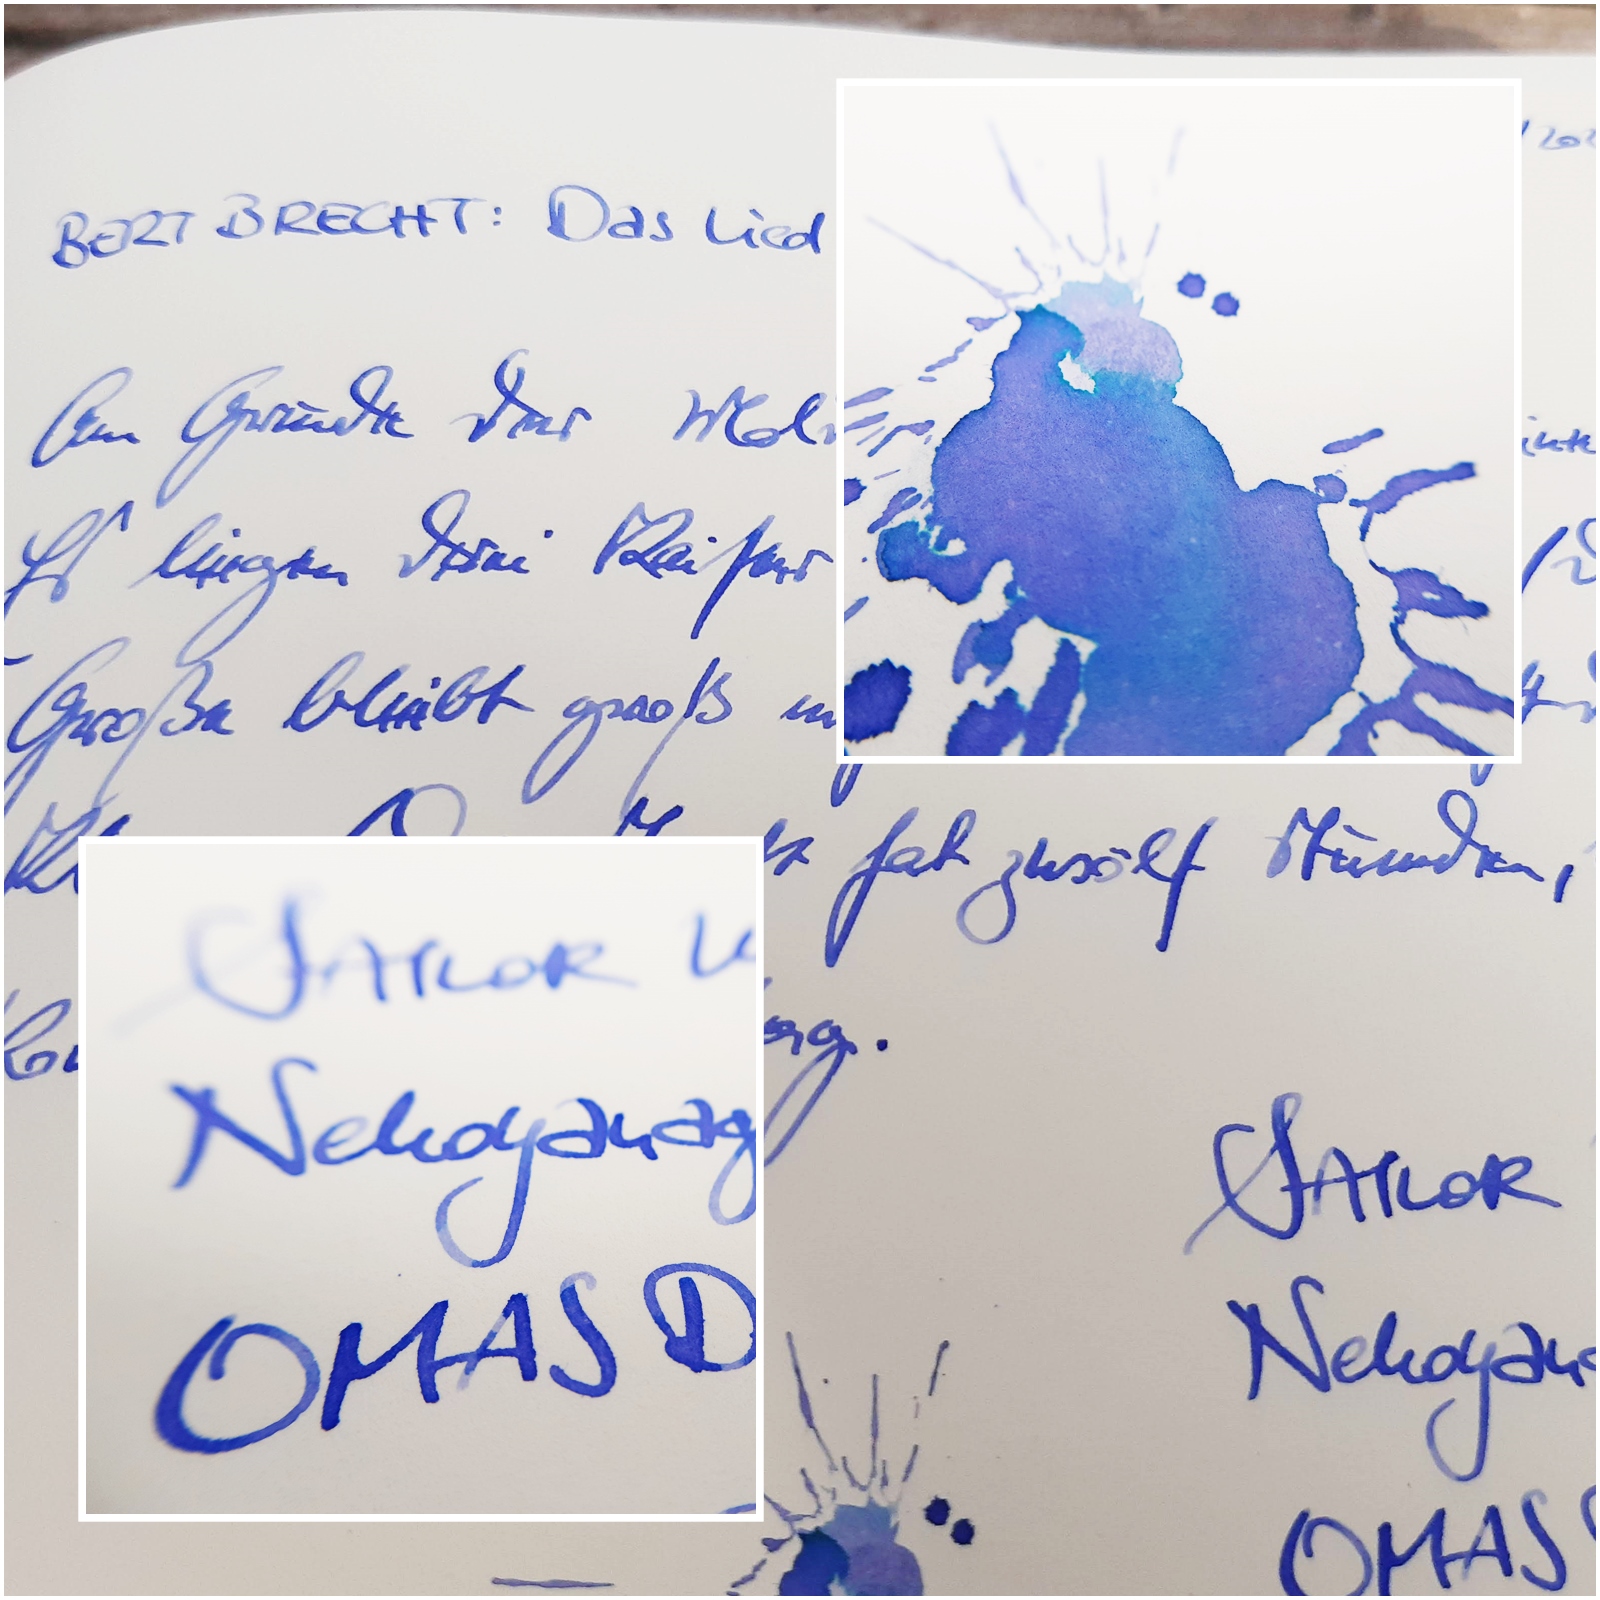 BERT BRECHT: Das Lied
Am Grunde der Mol
Es liegen drei Kaiser
Große bleibt groß
hat zwölf Stunden,
Tag.
SAILOR
Nekoyanag
OMAS D
SAILOR
Nekoyana
OMAS